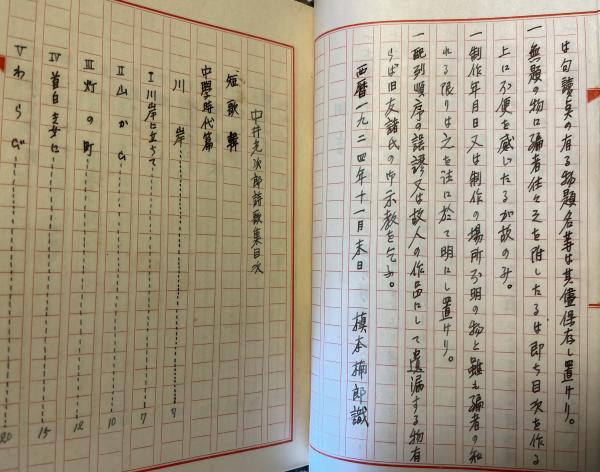 は句讀点の有る物題名等は其儘保存し置けり。
一 無題の物に編者往々之を附したるは即ち目次を作る
上に不便を感じたるが故のみ。
一 制作年月日又は制作の場所不明の物と雖も編者の知
れる限りは之を註に於て明にし置けり。
一 配列順序の誤謬又は故人の作品にして遺漏する物有
らば旧友諸氏の御示教を乞ふ。
西暦一九二四年十一月末日 槙本楠郎識
中井光次郎詩歌集目次
短歌輯
中學時代篇
川岸 7
I 川岸に立ちて 7
II 山かひ 10
III 灯の町 12
IV 首白き女に 15
V わらぢ 20